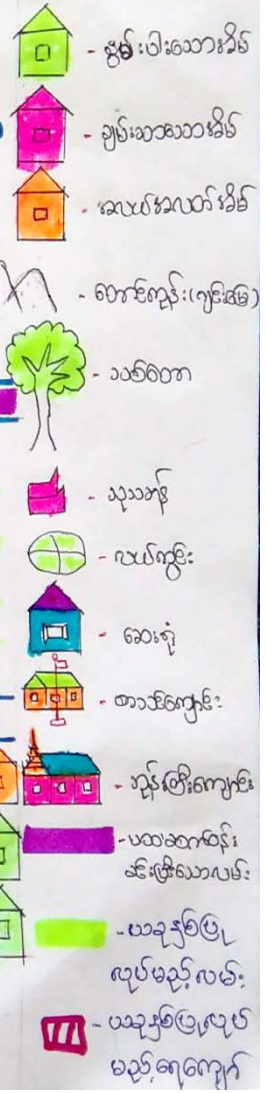 - နွမ်းပါးသောအိမ်
- ချမ်းသာသောအိမ်
- အလယ်အလတ်အိမ်
- တောင်ကုန်း(ကျင်းမြေ)
- သစ်တော
- သုသာန်
- လယ်ကွင်း
- ဆေးရုံ
- စာသင်ကျောင်း
- ဘုန်းကြီးကျောင်း
- ပထမ
ခင်းပြီးသောလမ်း
- ယခုနှစ်ပြု
လုပ်မည့်လမ်း
- ယခုနှစ်ပြုလုပ်
မည့်ရေကျော်